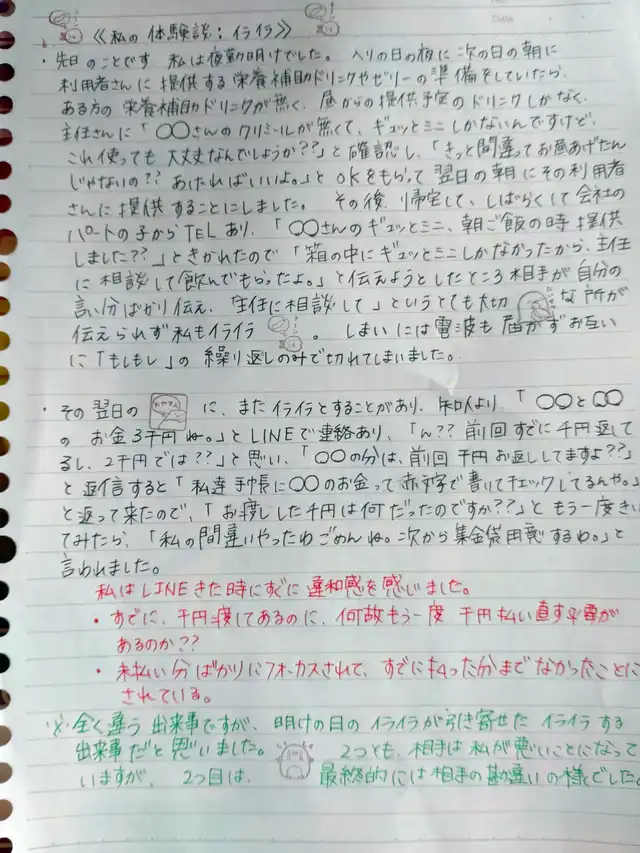 Date
《私の体験談：イライラ》
・先日のことです 私は夜勤明けでした。入りの日の夜に次の日の朝に
利用者さんに提供する栄養補助ドリンクやゼリーの準備をしていたら、
ある方の栄養補助ドリンクが無く、昼からの提供予定のドリンクしかなく、
主任さんに「〇〇さんのクリミールが無くて、ギュッとミニしかないんですけど、
これ使っても大丈夫なんでしょうか??」と確認し、「きっと間違ってお昼あげたん
じゃないの?? あければいいよ。」とOKをもらって翌日の朝にその利用者
さんに提供することにしました。その後、帰宅して、しばらくして会社の
パートの子からTELあり、「〇〇さんのギュッとミニ、朝ご飯の時提供
しました??」ときかれたので「箱の中にギュッとミニしかなかったから、主任
に相談して飲んでもらったよ。」と伝えようとしたところ相手が自分の
言い分ばかり伝え、「主任に相談して」というとても大切な所が
伝えられず私もイライラ。しまいには電波も届かずお互い
に「もしもし」の繰り返しのみで切れてしまいました。
・その翌日の おやすみ に、またイライラとすることがあり、知人より、「〇〇と〇〇
のお金3千円ね。」とLINEで連絡あり、「ん?? 前回すでに千円返して
るし、2千円では??」と思い、「〇〇の分は、前回千円お返ししてますよ??」
と返信すると「私達手帳に〇〇のお金って赤文字で書いてチェックしてるんや。」
と返って来たので、「お渡しした千円は何だったのですか??」ともう一度きい
てみたら、「私の間違いやったわごめんね。次から集金袋用意するわ。」と
言われました。
私はLINEきた時にすぐに違和感を感じました。
・すでに、千円渡してあるのに、何故もう一度千円払い直す必要が
あるのか??
・未払い分ばかりにフォーカスされて、すでに払った分までなかったことに
されている。
※全く違う出来事ですが、明けの日のイライラが引き寄せたイライラする
出来事だと思いました。2つとも、相手は私が悪いことになって
いますが、2つ目は、最終的には相手の勘違いの様でした。